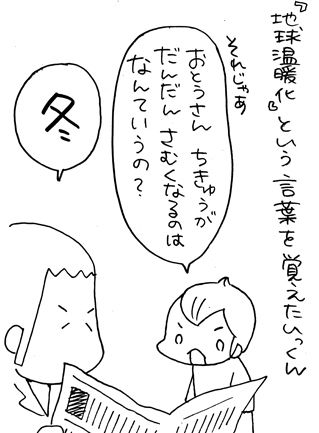 『地球温暖化』という言葉を覚えたいっくん
それじゃあ
おとうさん ちきゅうが
だんだん さむくなるのは
なんていうの?
冬